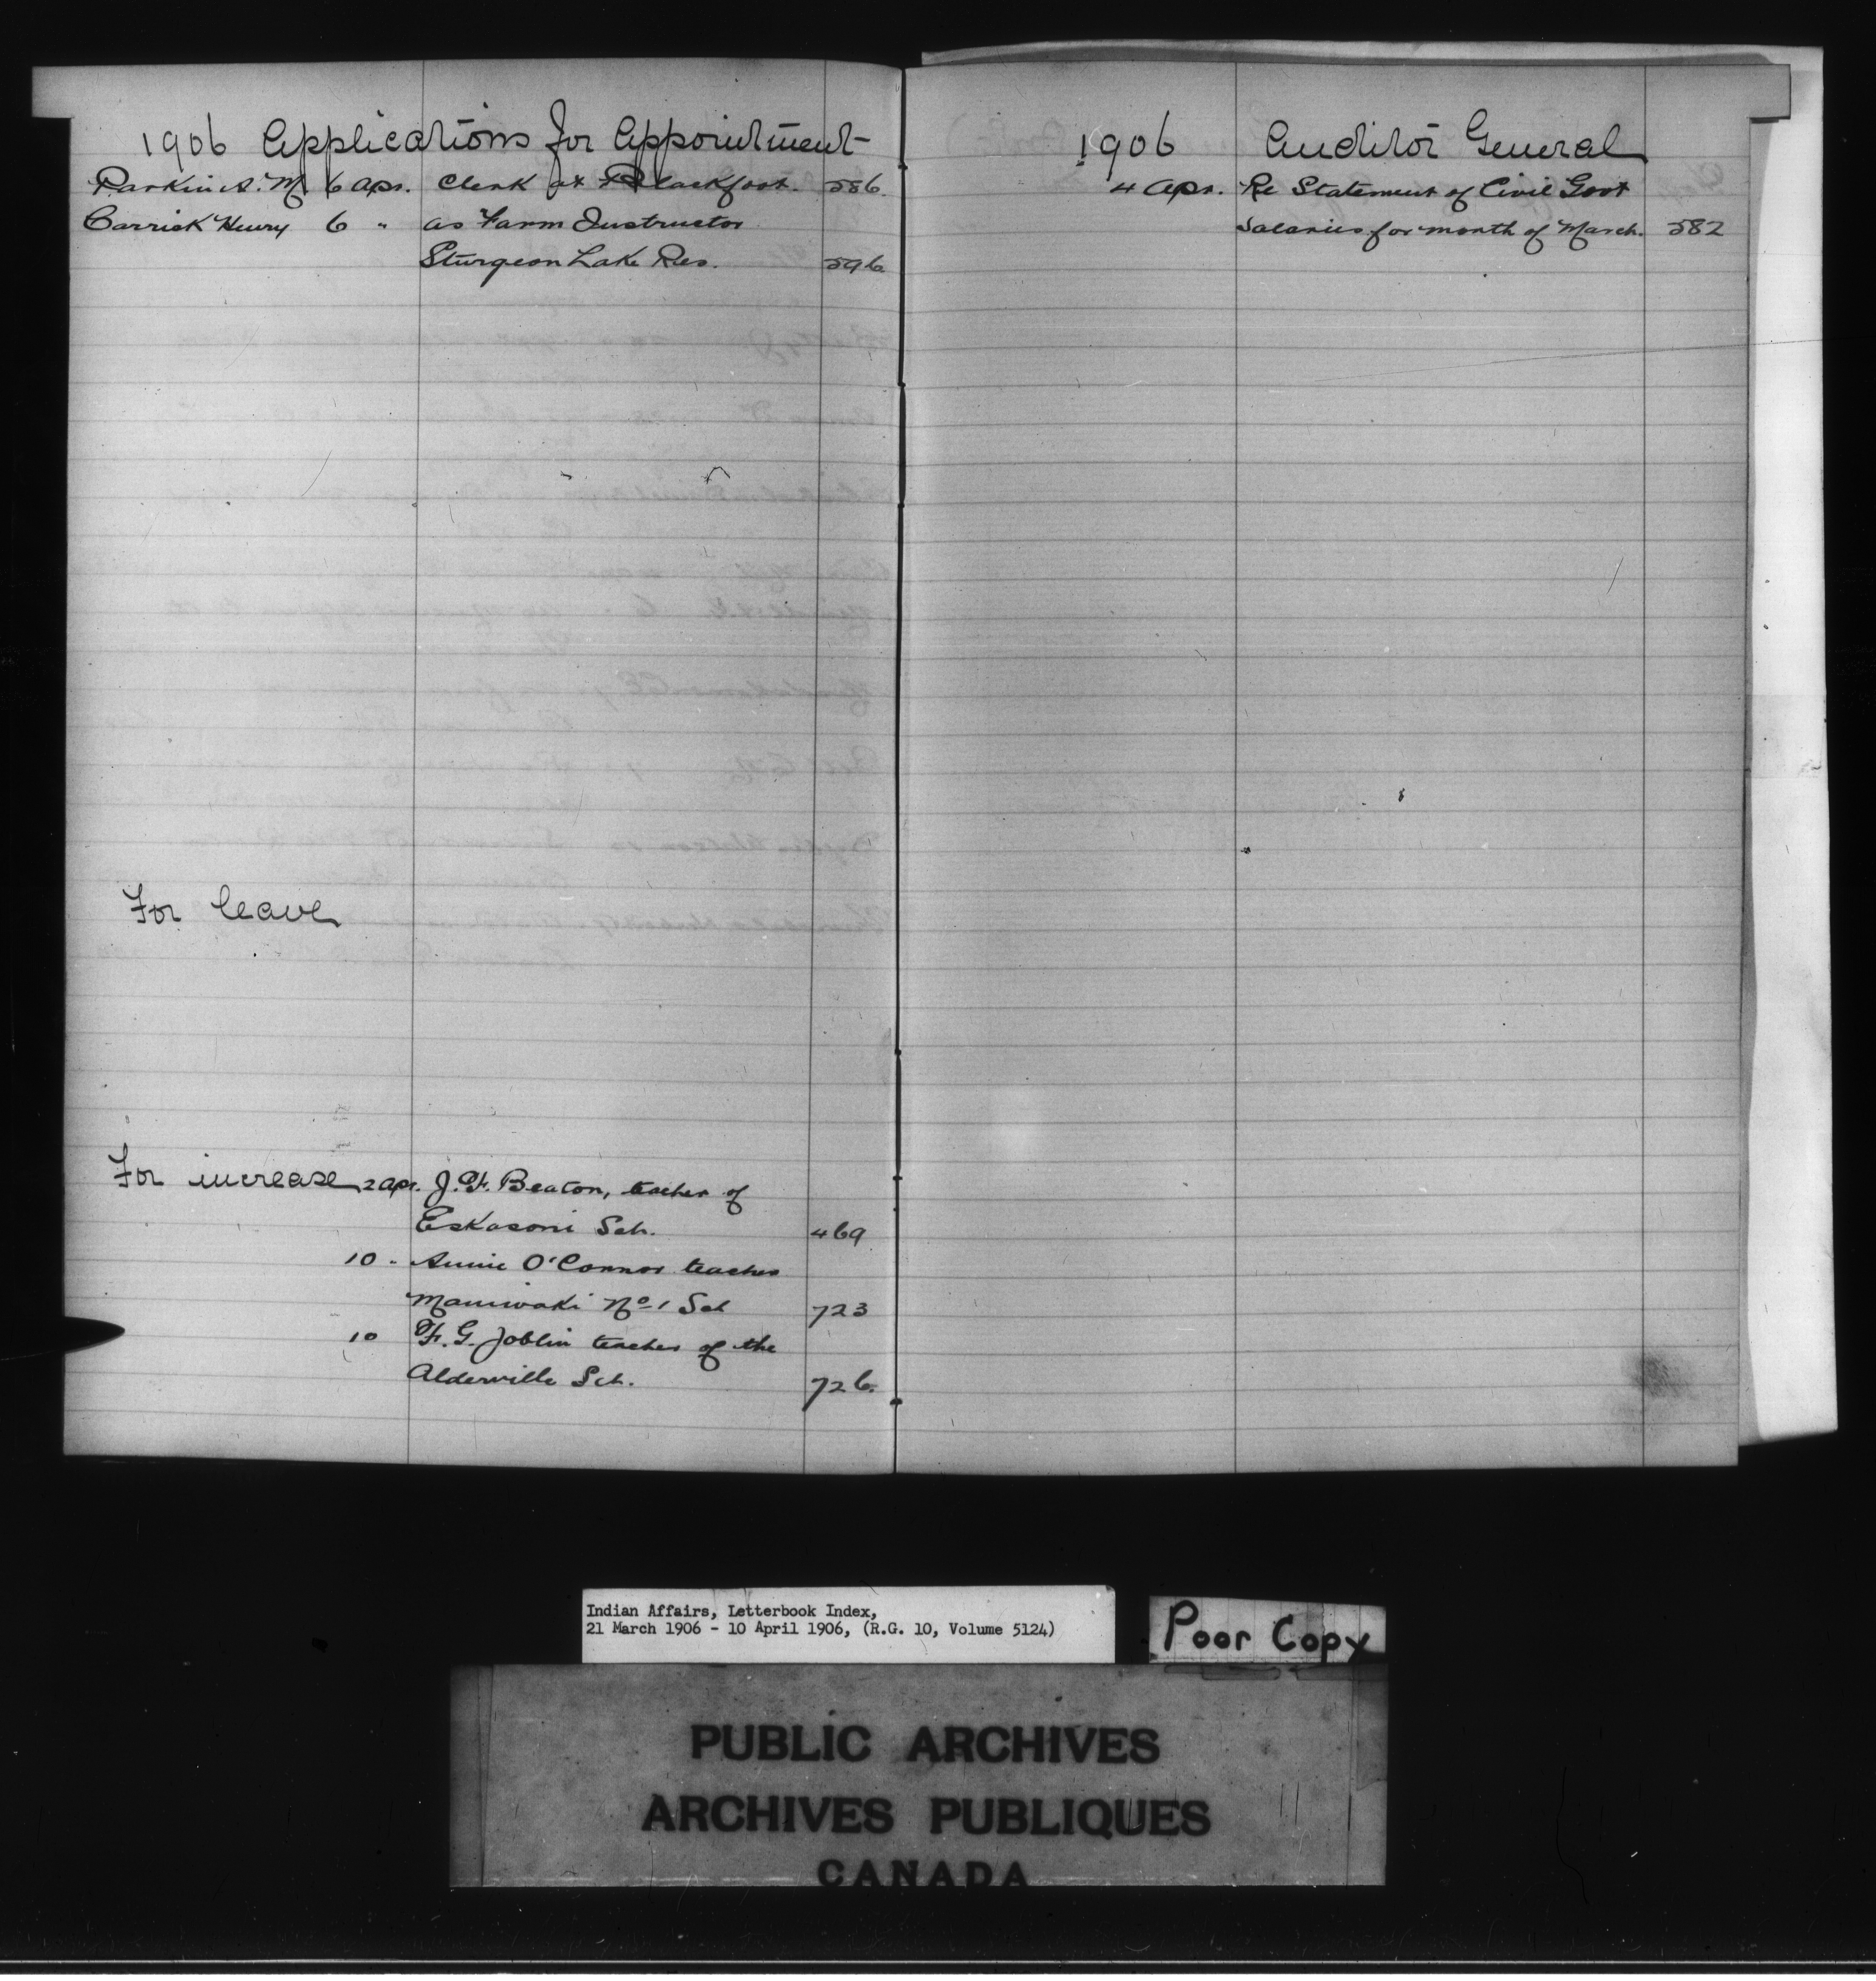 1906 Applications for Appointment
Parkin A. M. 6 Apr. Clerk at Blackfoot. 586.
Carrick Henry 6 " as Farm Instructor
Sturgeon Lake Res. 596.
For leave
For increase 2 Apr. J. F. Beaton, teacher of
Eskasoni Sch. 469
10 " Annie O'Connor teacher
Maniwaki No 1 Sch 723
10 F. G. Joblin teacher of the
Alderville Sch. 726.
1906 Auditor General
4 Apr. Re Statement of Civil Govt
Salaries for month of March. 582
Indian Affairs, Letterbook Index,
21 March 1906 - 10 April 1906, (R.G. 10, Volume 5124)
Poor Copy
PUBLIC ARCHIVES
ARCHIVES PUBLIQUES
CANADA